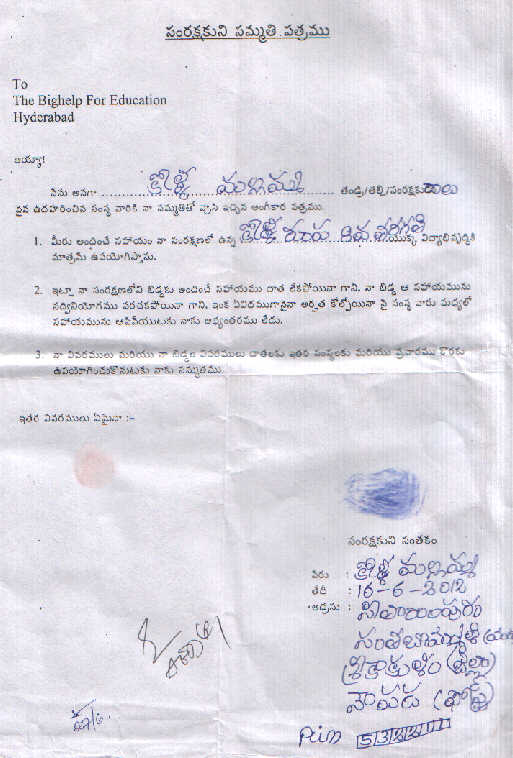 సంరక్షకుని సమ్మతి పత్రము
To
The Bighelp For Education
Hyderabad
అయ్యా!
నేను అనగా మల్లమ్మ తండ్రి/తల్లి/సంరక్షకు
పైన ఉదహరించిన సంస్థ వారికి నా సమ్మతితో వ్రాసి ఇచ్చిన అంగీకార పత్రము.
1. మీరు అందించే సహాయం నా సంరక్షణలో ఉన్న యొక్క విద్యాభివృద్ధికి
మాత్రమే ఉపయోగిస్తాను.
2. ఇట్లా నా సంరక్షణలోని బిడ్డకు అందించే సహాయము దాత లేకపోయినా గాని, నా బిడ్డ ఆ సహాయమును
సద్వినియోగము పరచకపోయినా గాని, ఇంక ఏవిధముగానైనా అర్హత కోల్పోయినా పై సంస్థ వారు మధ్యలో
సహాయమును ఆపివేయుటకు నాకు అభ్యంతరము లేదు.
3. నా వివరములు మరియు నా బిడ్డ వివరములు దాతలకు ఇతర సంస్థలకు మరియు ప్రచారము కొరకు
ఉపయోగించుకొనుటకు నాకు సమ్మతము.
ఇతర వివరములు ఏమైనా :-
సంరక్షకుని సంతకం
పేరు : మల్లమ్మ
తేదీ : 16-6-2012
అడ్రసు :
సంతబొమ్మాళి
శ్రీకాకుళం (జిల్లా)
నౌపడ (పోస్ట్)
Pin